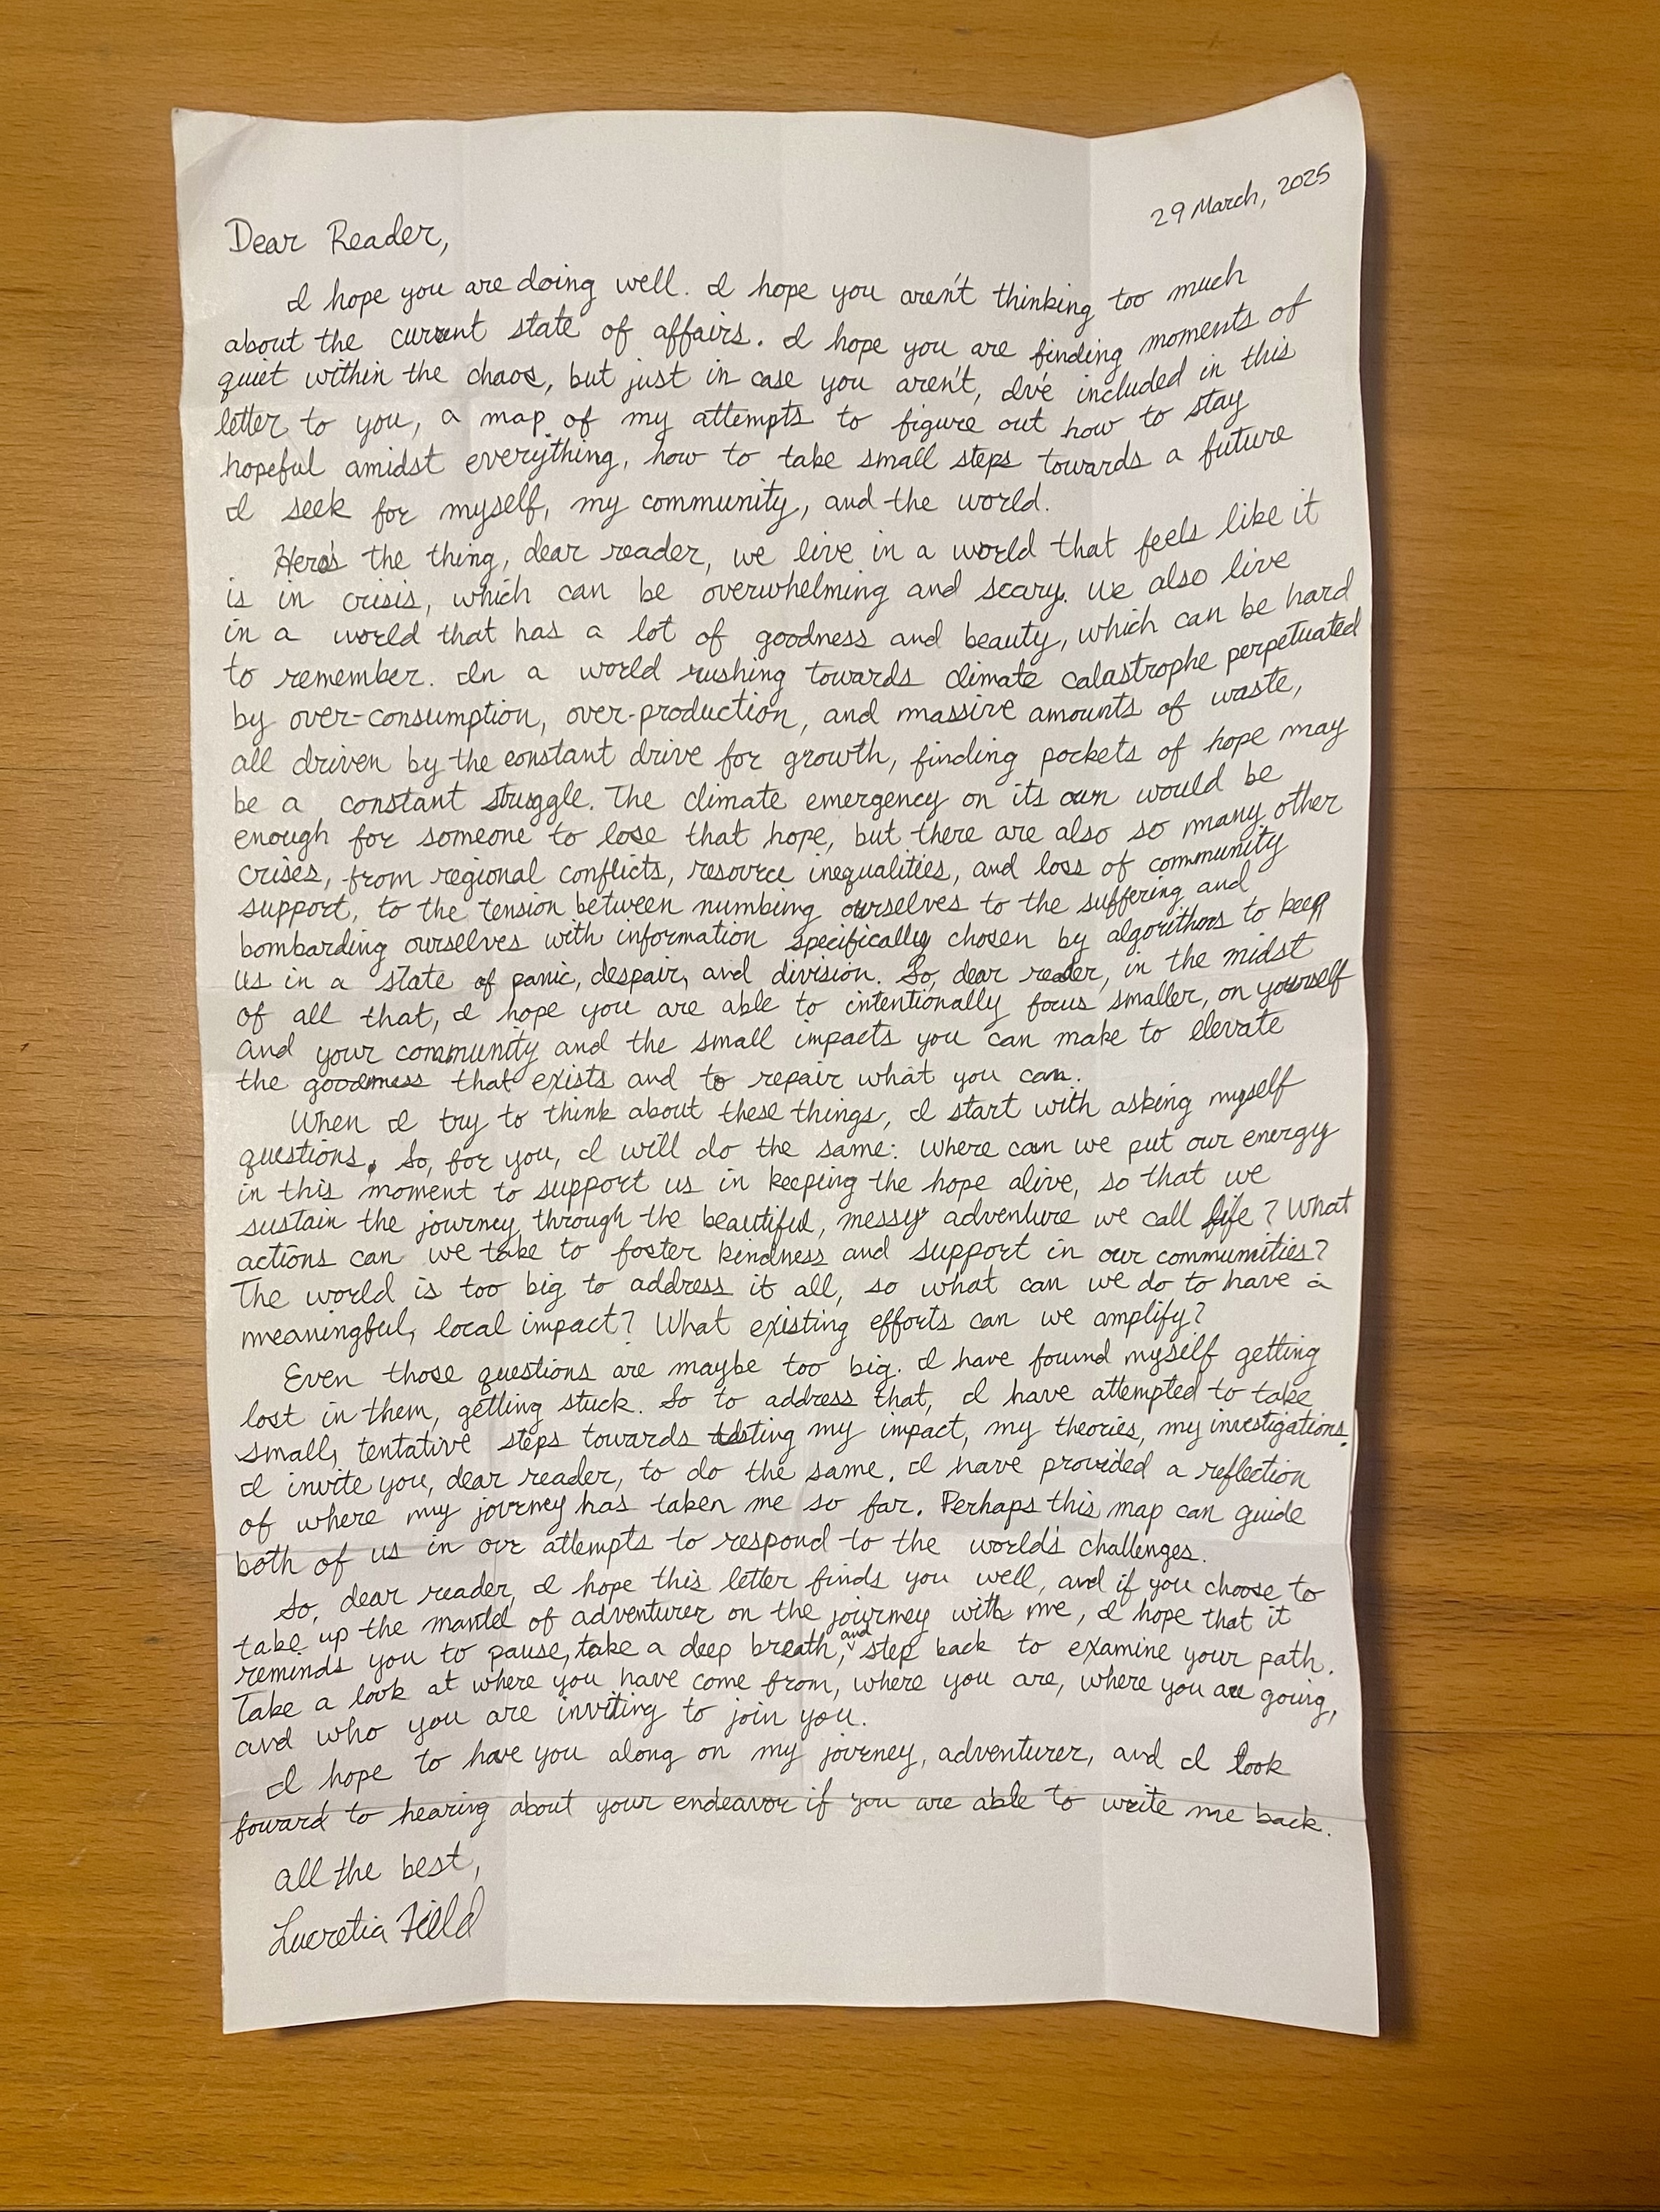 29 March, 2025
Dear Reader,
I hope you are doing well. I hope you aren't thinking too much
about the current state of affairs. I hope you are finding moments of
quiet within the chaos, but just in case you aren't, I've included in this
letter to you, a map of my attempts to figure out how to stay
hopeful amidst everything, how to take small steps towards a future
I seek for myself, my community, and the world.
Here's the thing, dear reader, we live in a world that feels like it
is in crisis, which can be overwhelming and scary. We also live
in a world that has a lot of goodness and beauty, which can be hard
to remember. In a world rushing towards climate catastrophe perpetuated
by over-consumption, over-production, and massive amounts of waste,
all driven by the constant drive for growth, finding pockets of hope may
be a constant struggle. The climate emergency on its own would be
enough for someone to lose that hope, but there are also so many other
crises, from regional conflicts, resource inequalities, and loss of community
support, to the tension between numbing ourselves to the suffering and
bombarding ourselves with information specifically chosen by algorithms to keep
us in a state of panic, despair, and division. So, dear reader, in the midst
of all that, I hope you are able to intentionally focus smaller, on yourself
and your community and the small impacts you can make to elevate
the goodness that exists and to repair what you can.
When I try to think about these things, I start with asking myself
questions. So, for you, I will do the same: Where can we put our energy
in this moment to support us in keeping the hope alive, so that we
sustain the journey through the beautiful, messy adventure we call life? What
actions can we take to foster kindness and support in our communities?
The world is too big to address it all, so what can we do to have a
meaningful, local impact? What existing efforts can we amplify?
Even those questions are maybe too big. I have found myself getting
lost in them, getting stuck. So to address that, I have attempted to take
small, tentative steps towards testing my impact, my theories, my investigations.
I invite you, dear reader, to do the same. I have provided a reflection
of where my journey has taken me so far. Perhaps this map can guide
both of us in our attempts to respond to the world's challenges.
So, dear reader, I hope this letter finds you well, and if you choose to
take up the mantel of adventurer on the journey with me, I hope that it
reminds you to pause, take a deep breath, and step back to examine your path.
Take a look at where you have come from, where you are, where you are going,
and who you are inviting to join you.
I hope to have you along on my journey, adventurer, and I look
foward to hearing about your endeavor if you are able to write me back.
All the best,
Lucretia Field